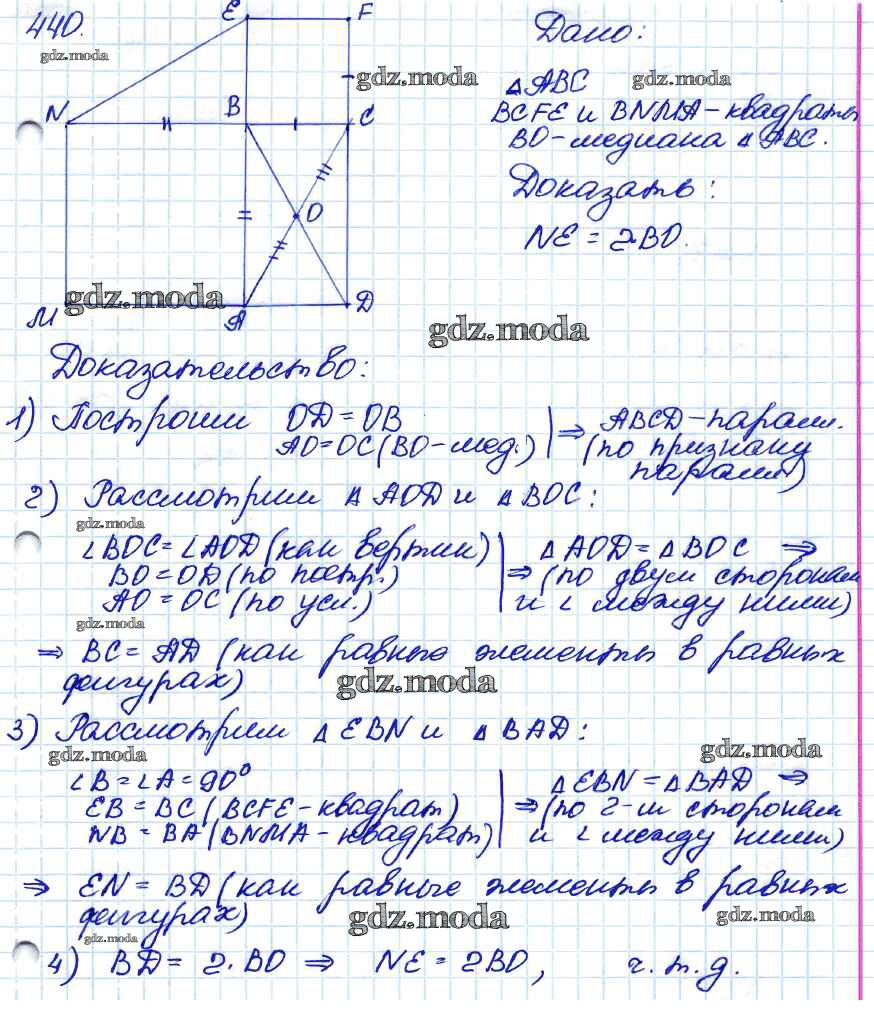 440.
gdz.moda
E F
gdz.moda
N B C
O
gdz.moda
M A D
Дано:
gdz.moda
△ABC
BCFE и BNMA – квадраты
BO – медиана △ ABC.
Доказать:
NE = 2BO.
gdz.moda
Доказательство:
1) Построим OD = OB
AO = OC (BO – мед.) ⇒ ABCD – паралл.
(по признаку
паралл)
2) Рассмотрим △ AOD и △ BOC:
gdz.moda
∠BOC = ∠AOD (как вертик)
BO = OD (по постр.)
AO = OC (по усл.)
△ AOD = △ BOC ⇒
⇒ (по двум сторонам
и ∠ между ними)
gdz.moda
⇒ BC = AD (как равные элементы в равных
фигурах)
gdz.moda
3) Рассмотрим △ EBN и △ BAD:
gdz.moda
gdz.moda
∠B = ∠A = 90°
EB = BC (BCFE – квадрат)
NB = BA (BNMA – квадрат)
△ EBN = △ BAD ⇒
⇒ (по 2-м сторонам
и ∠ между ними)
⇒ EN = BD (как равные элементы в равных
фигурах)
gdz.moda
gdz.moda
gdz.moda
4) BD = 2·BO ⇒ NE = 2BO, ч.т.д.